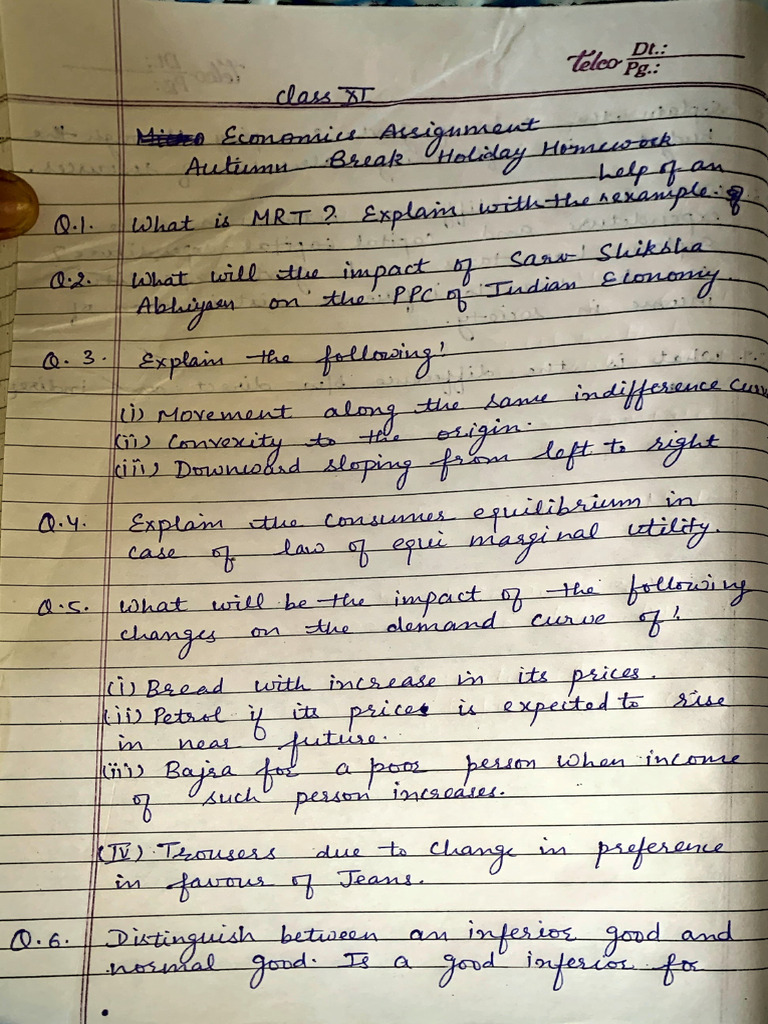 Telco Dt.:
Pg.:
Class XI
Micro Economics Assignment
Autumn Break Holiday Homework
Q.1. What is MRT? Explain with the help of an example.
Q.2. What will the impact of Sarv Shiksha
Abhiyaen on the PPC of Indian Economy.
Q.3. Explain the following:
(i) Movement along the same indifference curv
(ii) Convexity to the origin.
(iii) Downward sloping from left to right
Q.4. Explain the consumer equilibrium in
case of law of equi marginal utility.
Q.5. What will be the impact of the following
changes on the demand curve of:
(i) Bread with increase in its prices.
(ii) Petrol if its price is expected to rise
in near future.
(iii) Bajra for a poor person when income
of such person increases.
(IV) Trousers due to change in preference
in favour of Jeans.
Q.6. Distinguish between an inferior good and
normal good. Is a good inferior for